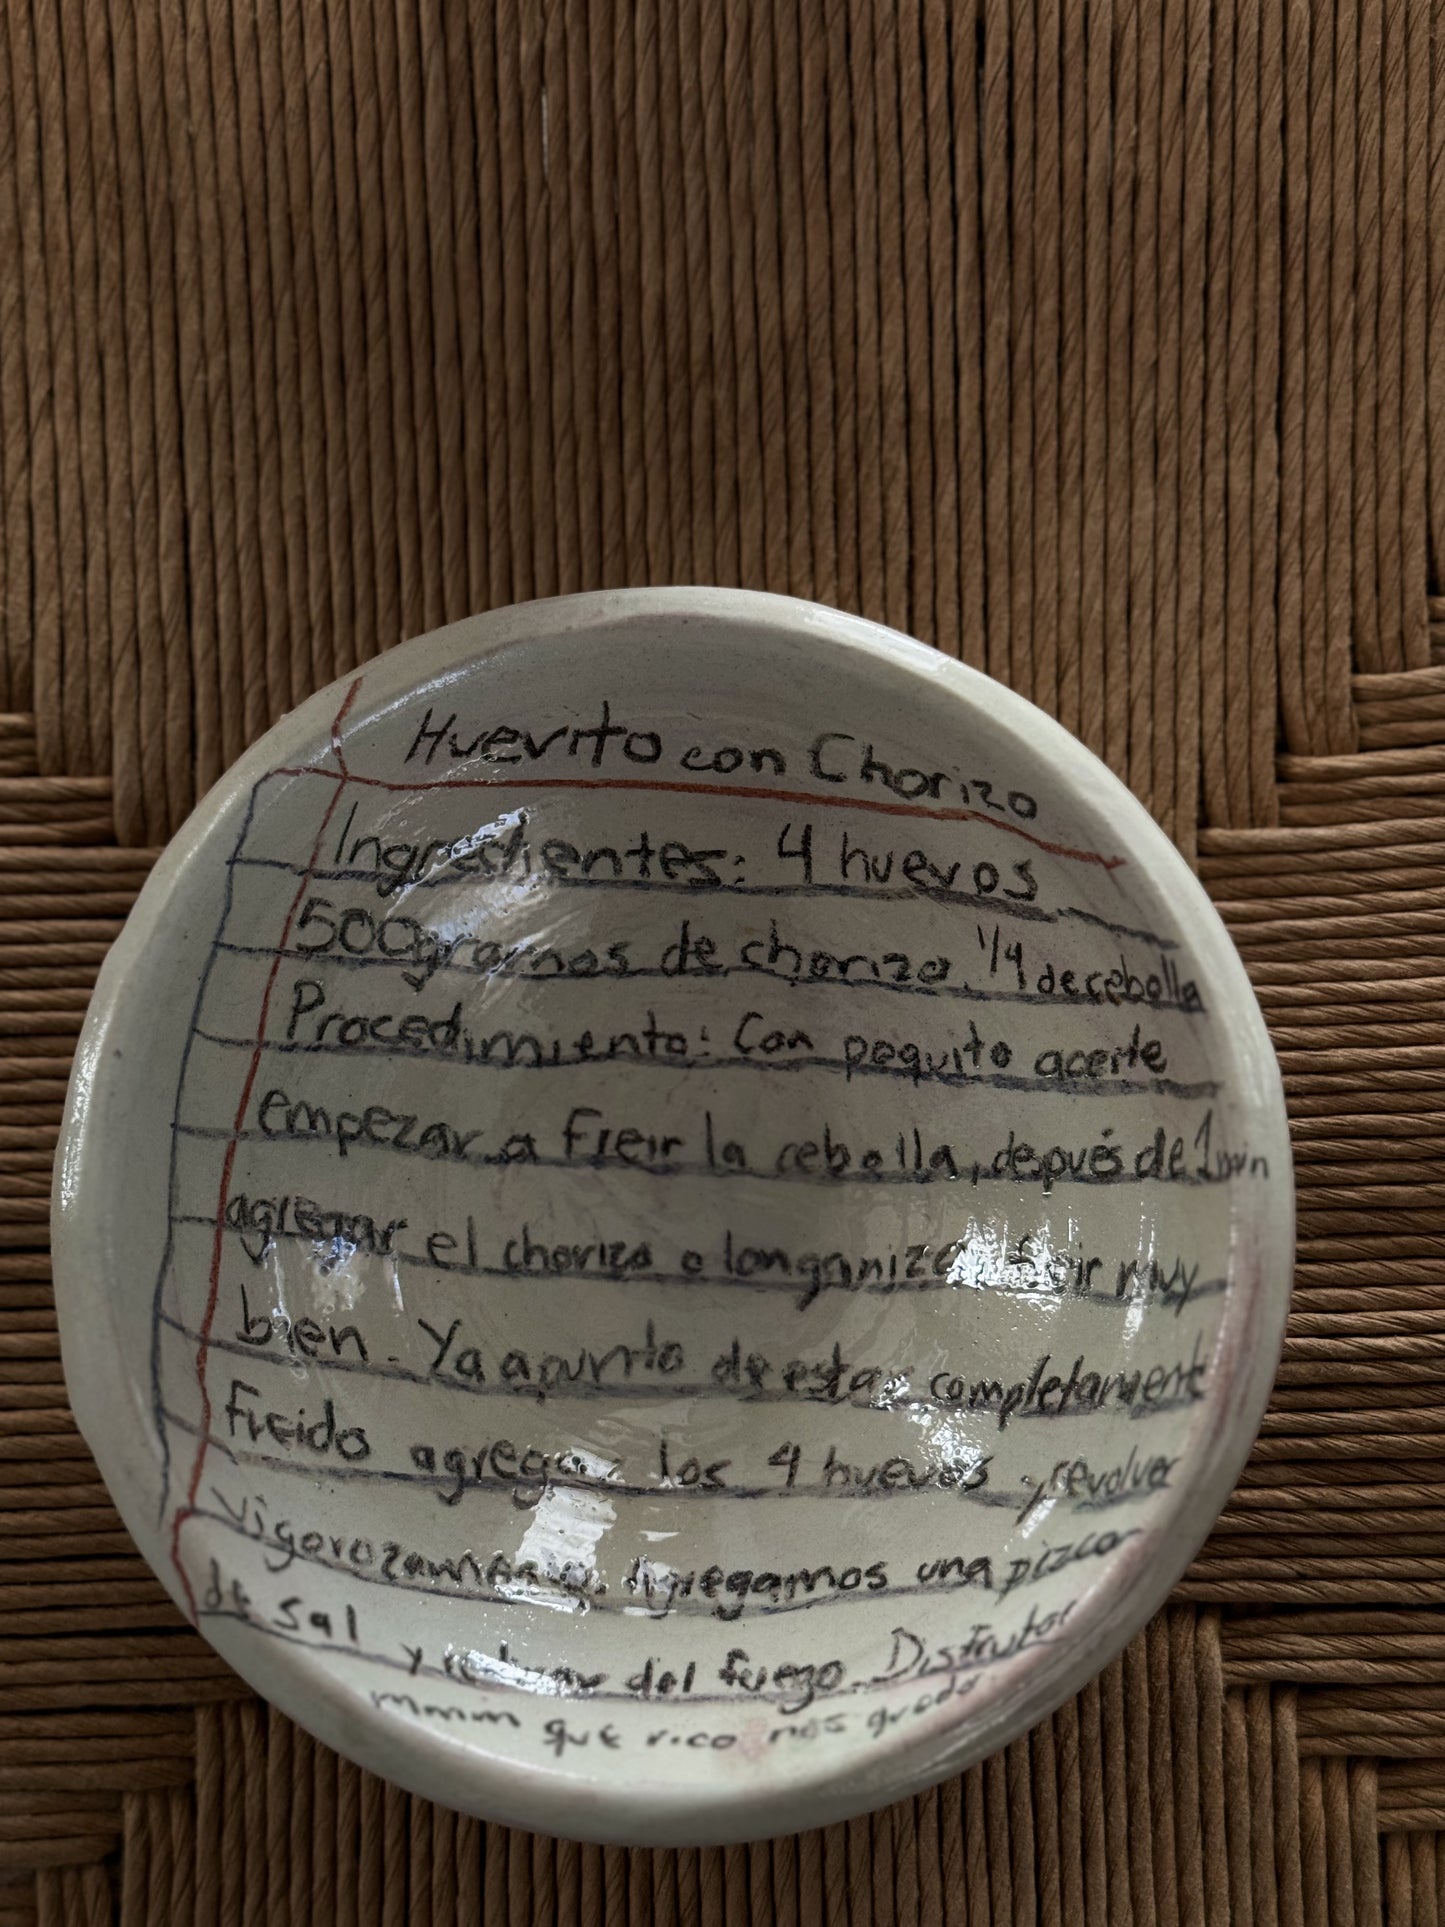 Huevito con Chorizo
Ingredientes: 4 huevos
500gramos de chorizo. 1/4 de cebolla
Procedimiento: Con poquito aceite
empezar a Freir la cebolla, después de 1 min
agregar el chorizo o longaniza freir muy
bien. Ya a punto de estar completament
Freido agregar los 4 huevos y revolver
Agregamos una pizca
de sal y retirar del fuego. Disfrutar
Mmmm que rico nos quedo